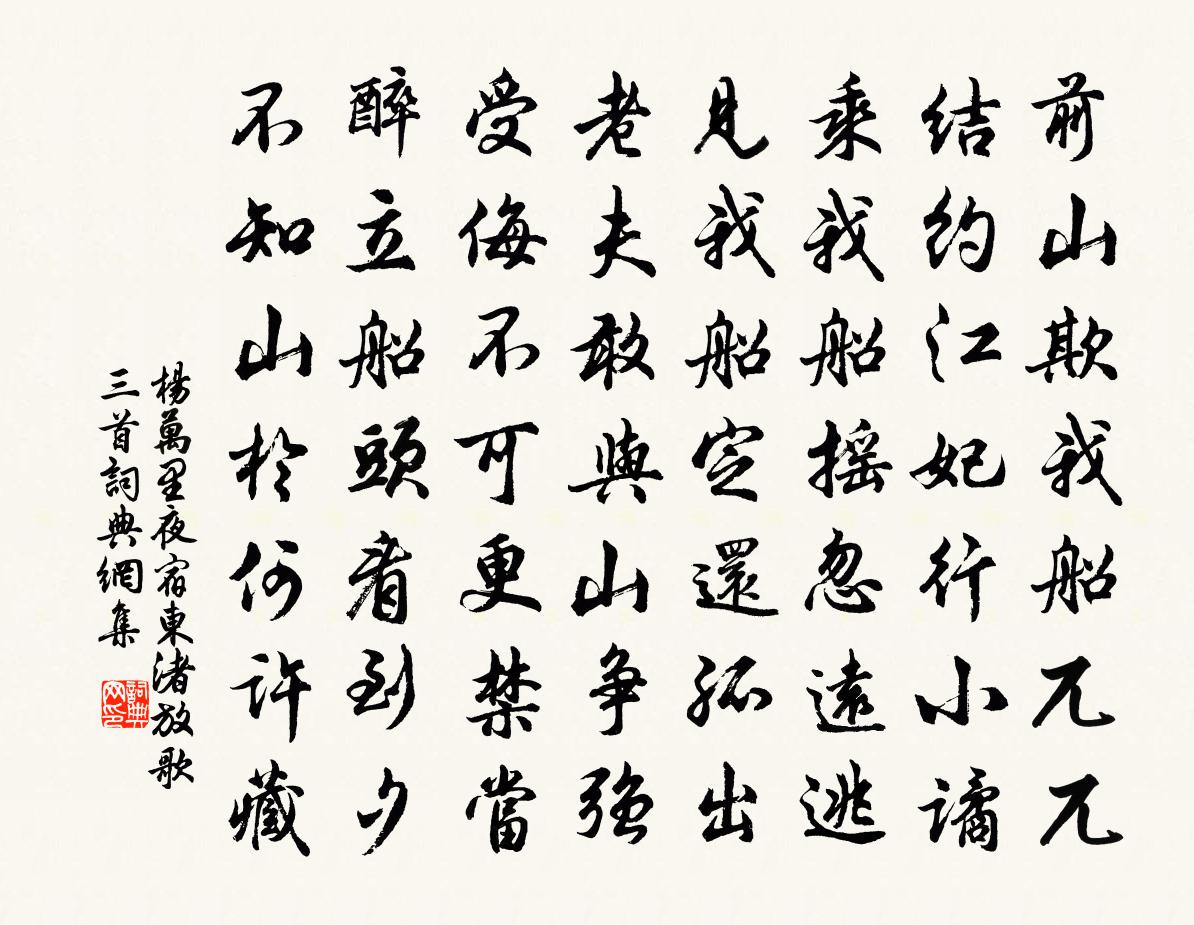 前山欺我船兀兀
结约江妃行小譎
乘我船摇忽遠逃
見我船定還孤出
老夫敢與山争強
受侮不可更禁當
醉立船頭看到夕
不知山於何許藏
楊萬里夜宿東渚放歌
三首詞典網集
詞典网印